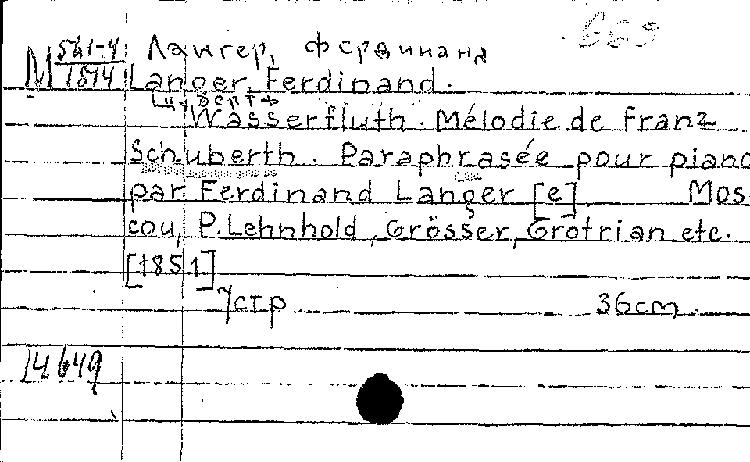 Лангер, Фердинанд
М 561-4/1874 Langer, Ferdinand.
Шуберт Ф
Wasserfluth. Mélodie de Franz
Schuberth. Paraphrasée pour piano
par Ferdinand Langer [e]. Mos-
cou, P. Lehnhold, Grösser, Grotrian etc.
[1851]
7стр 36cm.